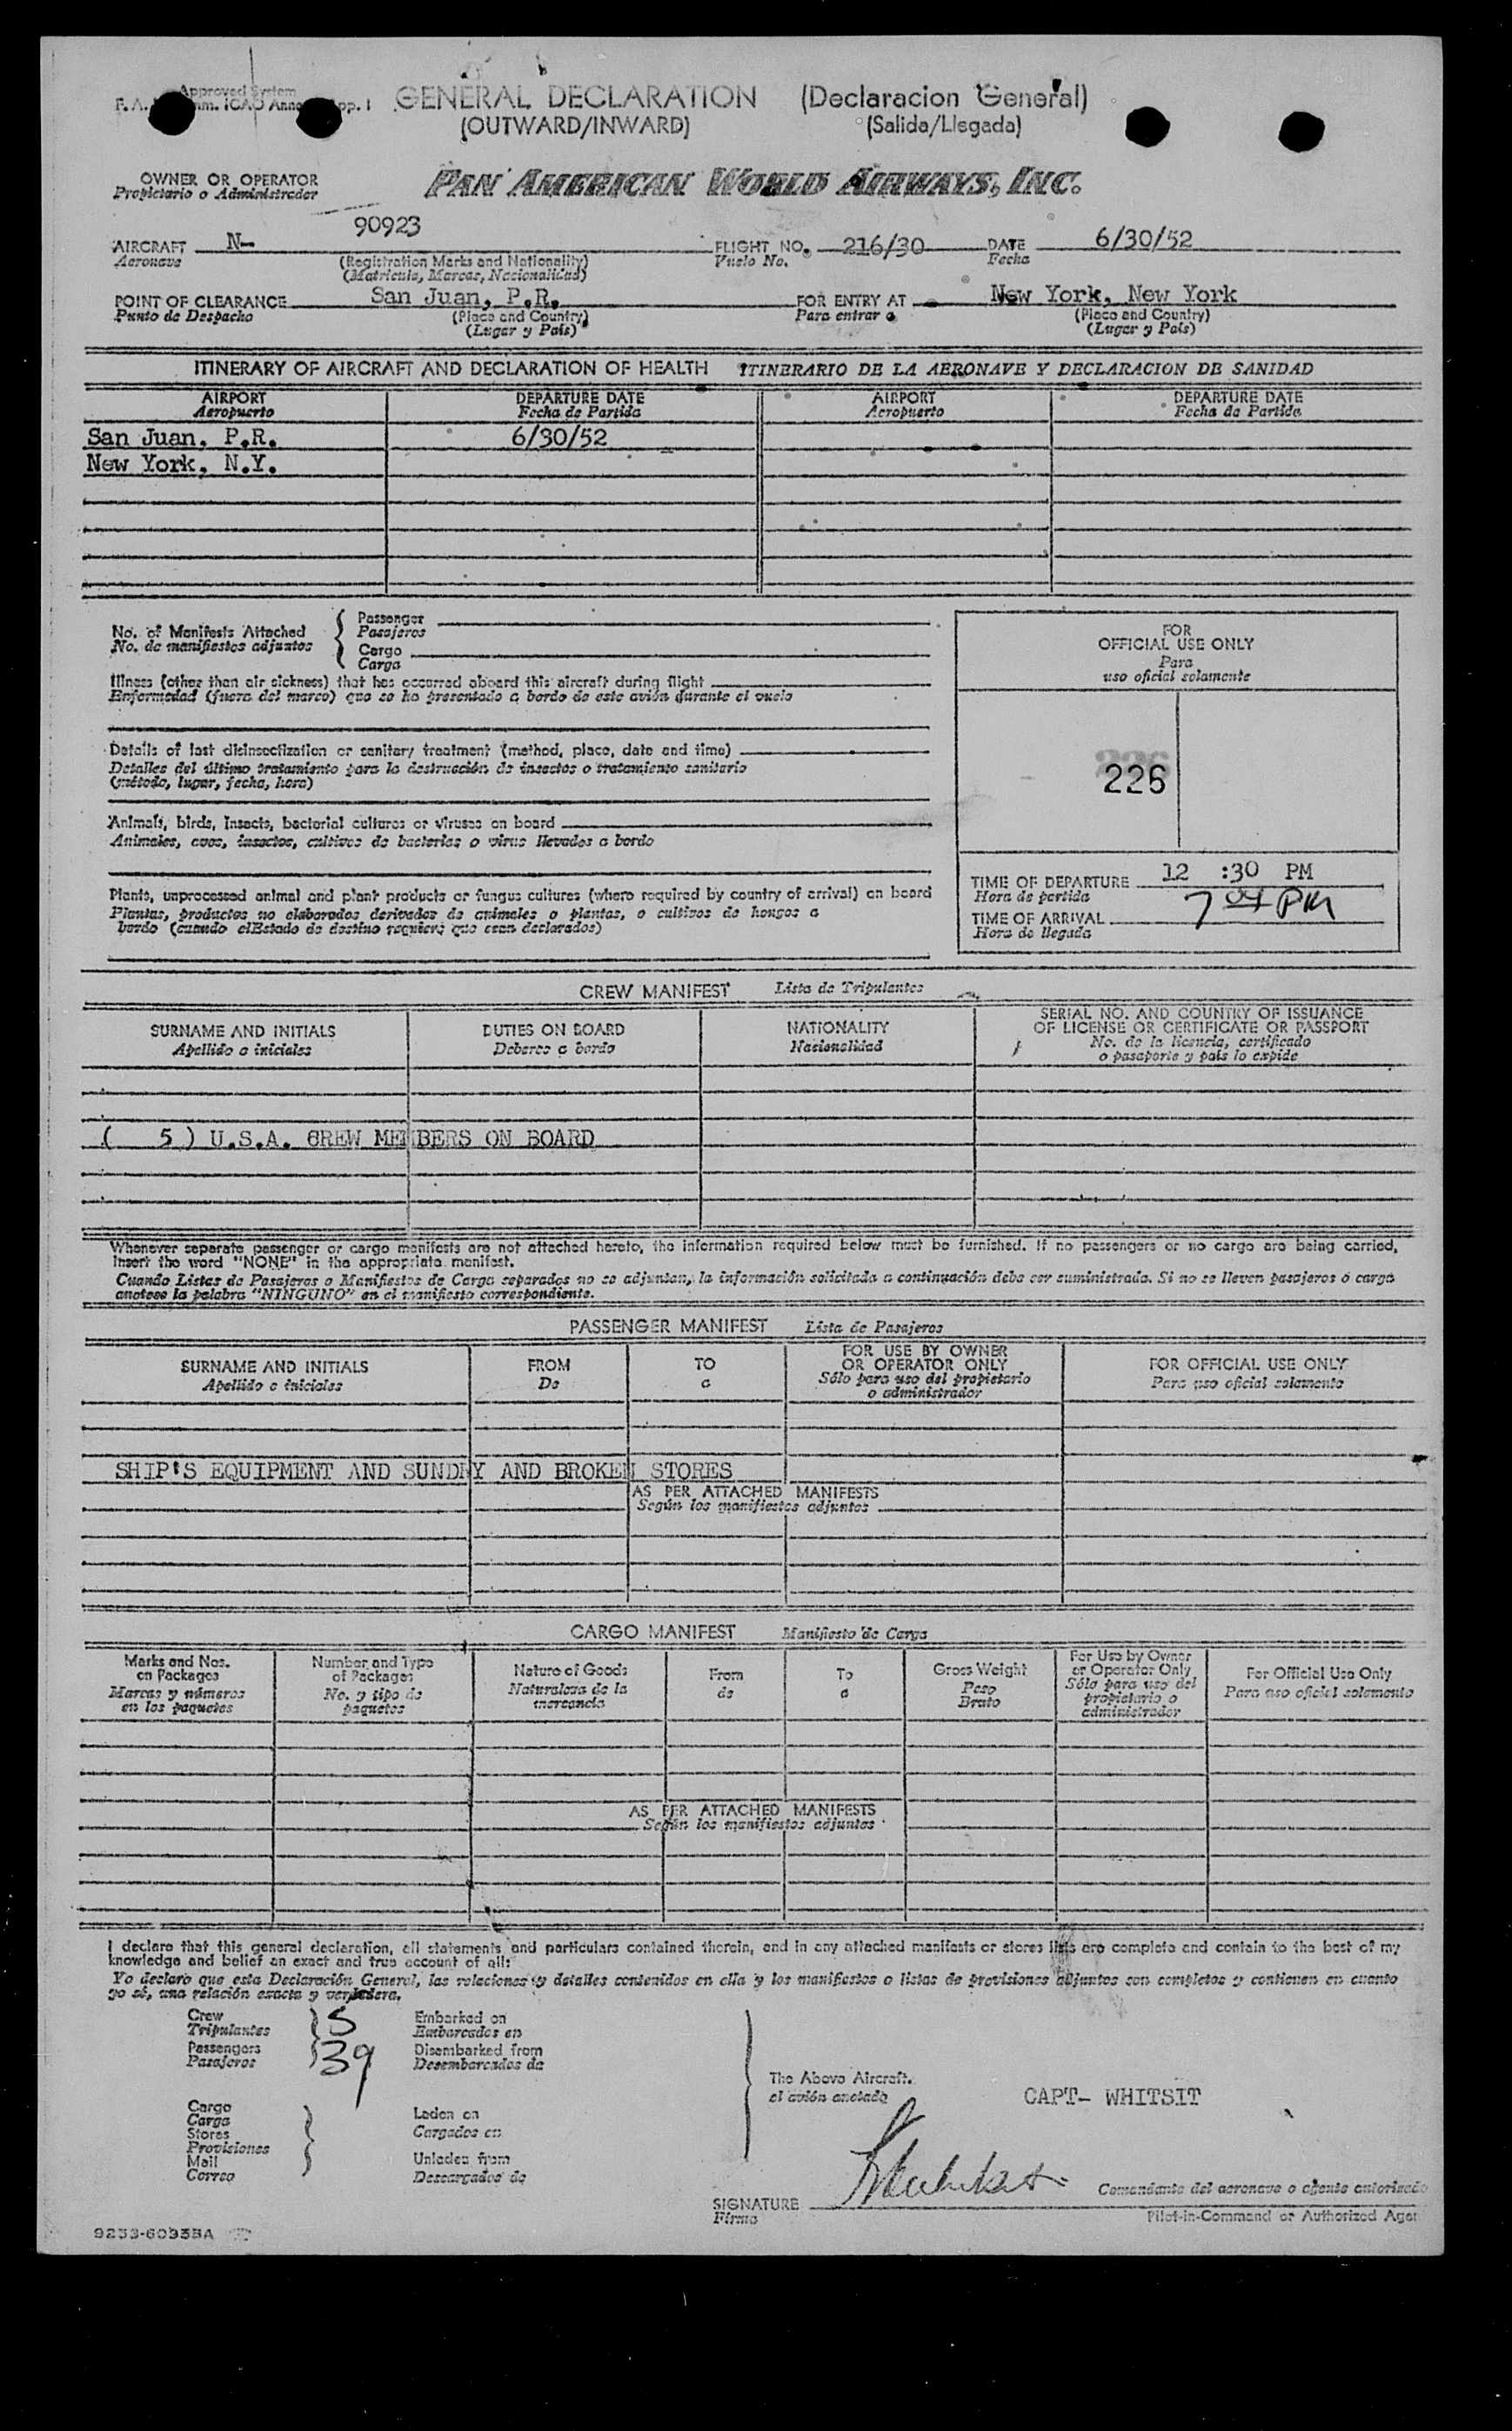 Approved System
GENERAL DECLARATION (Declaracion General)
(OUTWARD/INWARD) (Salida/Llegada)
OWNER OR OPERATOR
Propietario o Administrador
PAN AMERICAN WORLD AIRWAYS, INC.
AIRCRAFT N- 90923 FLIGHT NO. 216/30 DATE 6/30/52
Aeronave (Registration Marks and Nationality) Vuelo No. Fecha
(Matricula, Marcas, Nacionalidad)
POINT OF CLEARANCE San Juan, P.R. FOR ENTRY AT New York, New York
Punto de Despacho (Place and Country) Para entrar a (Place and Country)
(Lugar y País) (Lugar y País)
ITINERARY OF AIRCRAFT AND DECLARATION OF HEALTH ITINERARIO DE LA AERONAVE Y DECLARACION DE SANIDAD
AIRPORT DEPARTURE DATE AIRPORT DEPARTURE DATE
Aeropuerto Fecha de Partida Aeropuerto Fecha de Partida
San Juan, P.R. 6/30/52
New York, N.Y.
No. of Manifests Attached
No. de manifiestos adjuntos
Passenger
Pasajeros
Cargo
Carga
Illness (other than air sickness) that has occurred aboard this aircraft during flight
Enfermedad (fuera del mareo) que se ha presentado a bordo de este avión durante el vuelo
Details of last disinsectization or sanitary treatment (method, place, date and time)
Detalles del último tratamiento para la destrucción de insectos o tratamiento sanitario
(método, lugar, fecha, hora)
Animals, birds, insects, bacterial cultures or viruses on board
Animales, aves, insectos, cultivos de bacterias o virus llevados a bordo
Plants, unprocessed animal and plant products or fungus cultures (where required by country of arrival) on board
Plantas, productos no elaborados derivados de animales o plantas, o cultivos de hongos a
bordo (cuando elEstado de destino requiera que sean declarados)
FOR
OFFICIAL USE ONLY
Para
uso oficial solamente
226
226
TIME OF DEPARTURE 12 :30 PM
Hora de partida
TIME OF ARRIVAL 7 04 PM
Hora de llegada
CREW MANIFEST Lista de Tripulantes
SURNAME AND INITIALS DUTIES ON BOARD NATIONALITY SERIAL NO. AND COUNTRY OF ISSUANCE
OF LICENSE OR CERTIFICATE OR PASSPORT
Apellido e iniciales Deberes a bordo Nacionalidad No. de la licencia, certificado
o pasaporte y país lo expide
( 5 ) U.S.A. CREW MEMBERS ON BOARD
Whenever separate passenger or cargo manifests are not attached hereto, the information required below must be furnished. If no passengers or no cargo are being carried,
insert the word "NONE" in the appropriate manifest.
Cuando Listas de Pasajeros o Manifiestos de Carga separados no se adjuntan, la información solicitada a continuación debe ser suministrada. Si no se lleven pasajeros ó carga
anotese la palabra "NINGUNO" en el manifiesto correspondiente.
PASSENGER MANIFEST Lista de Pasajeros
SURNAME AND INITIALS FROM TO FOR USE BY OWNER
OR OPERATOR ONLY FOR OFFICIAL USE ONLY
Apellido e iniciales De a Sólo para uso del propietario
o administrador Para uso oficial solamente
SHIP'S EQUIPMENT AND SUNDRY AND BROKEN STORES
AS PER ATTACHED MANIFESTS
Según los manifiestos adjuntos
CARGO MANIFEST Manifiesto de Carga
Marks and Nos.
on Packages
Marcas y números
en los paquetes
Number and Type
of Packages
No. y tipo de
paquetes
Nature of Goods
Naturaleza de la
mercancia
From
de
To
a
Gross Weight
Peso
Bruto
For Use by Owner
or Operator Only
Sólo para uso del
propietario o
administrador
For Official Use Only
Para uso oficial solamente
AS PER ATTACHED MANIFESTS
Según los manifiestos adjuntos
I declare that this general declaration, all statements and particulars contained therein, and in any attached manifests or stores lists are complete and contain to the best of my
knowledge and belief an exact and true account of all:
Yo declaro que esta Declaración General, las relaciones y detalles contenidos en ella y los manifiestos o listas de provisiones adjuntos son completos y contienen en cuanto
yo sé, una relación exacta y verdadera.
Crew
Tripulantes 5
Passengers
Pasajeros 39
Embarked on
Embarcados en
Disembarked from
Desembarcados de
Cargo
Carga
Stores
Provisiones
Mail
Correo
Laden on
Cargados en
Unladen from
Descargados de
The Above Aircraft.
el avión anotado
CAPT- WHITSIT
SIGNATURE
Firma
Comandante del aeronave o agente autorizado
Pilot-in-Command or Authorized Agen
9233-60935A